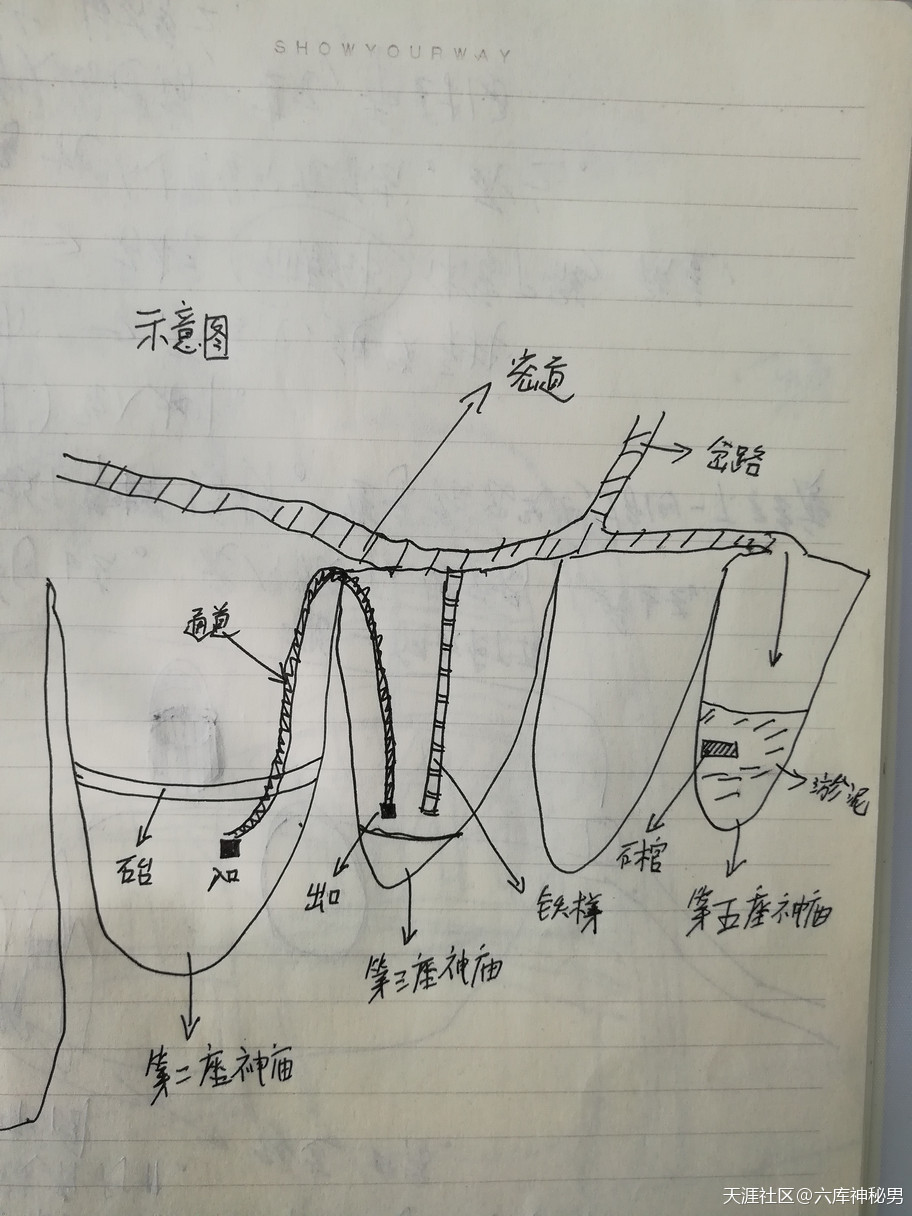 SHOWYOURWAY
示意图
密道
岔路
通道
石台
入口
出口
铁梯
石棺
淤泥
第五座神庙
第三座神庙
第二座神庙
天涯社区@六库神秘男